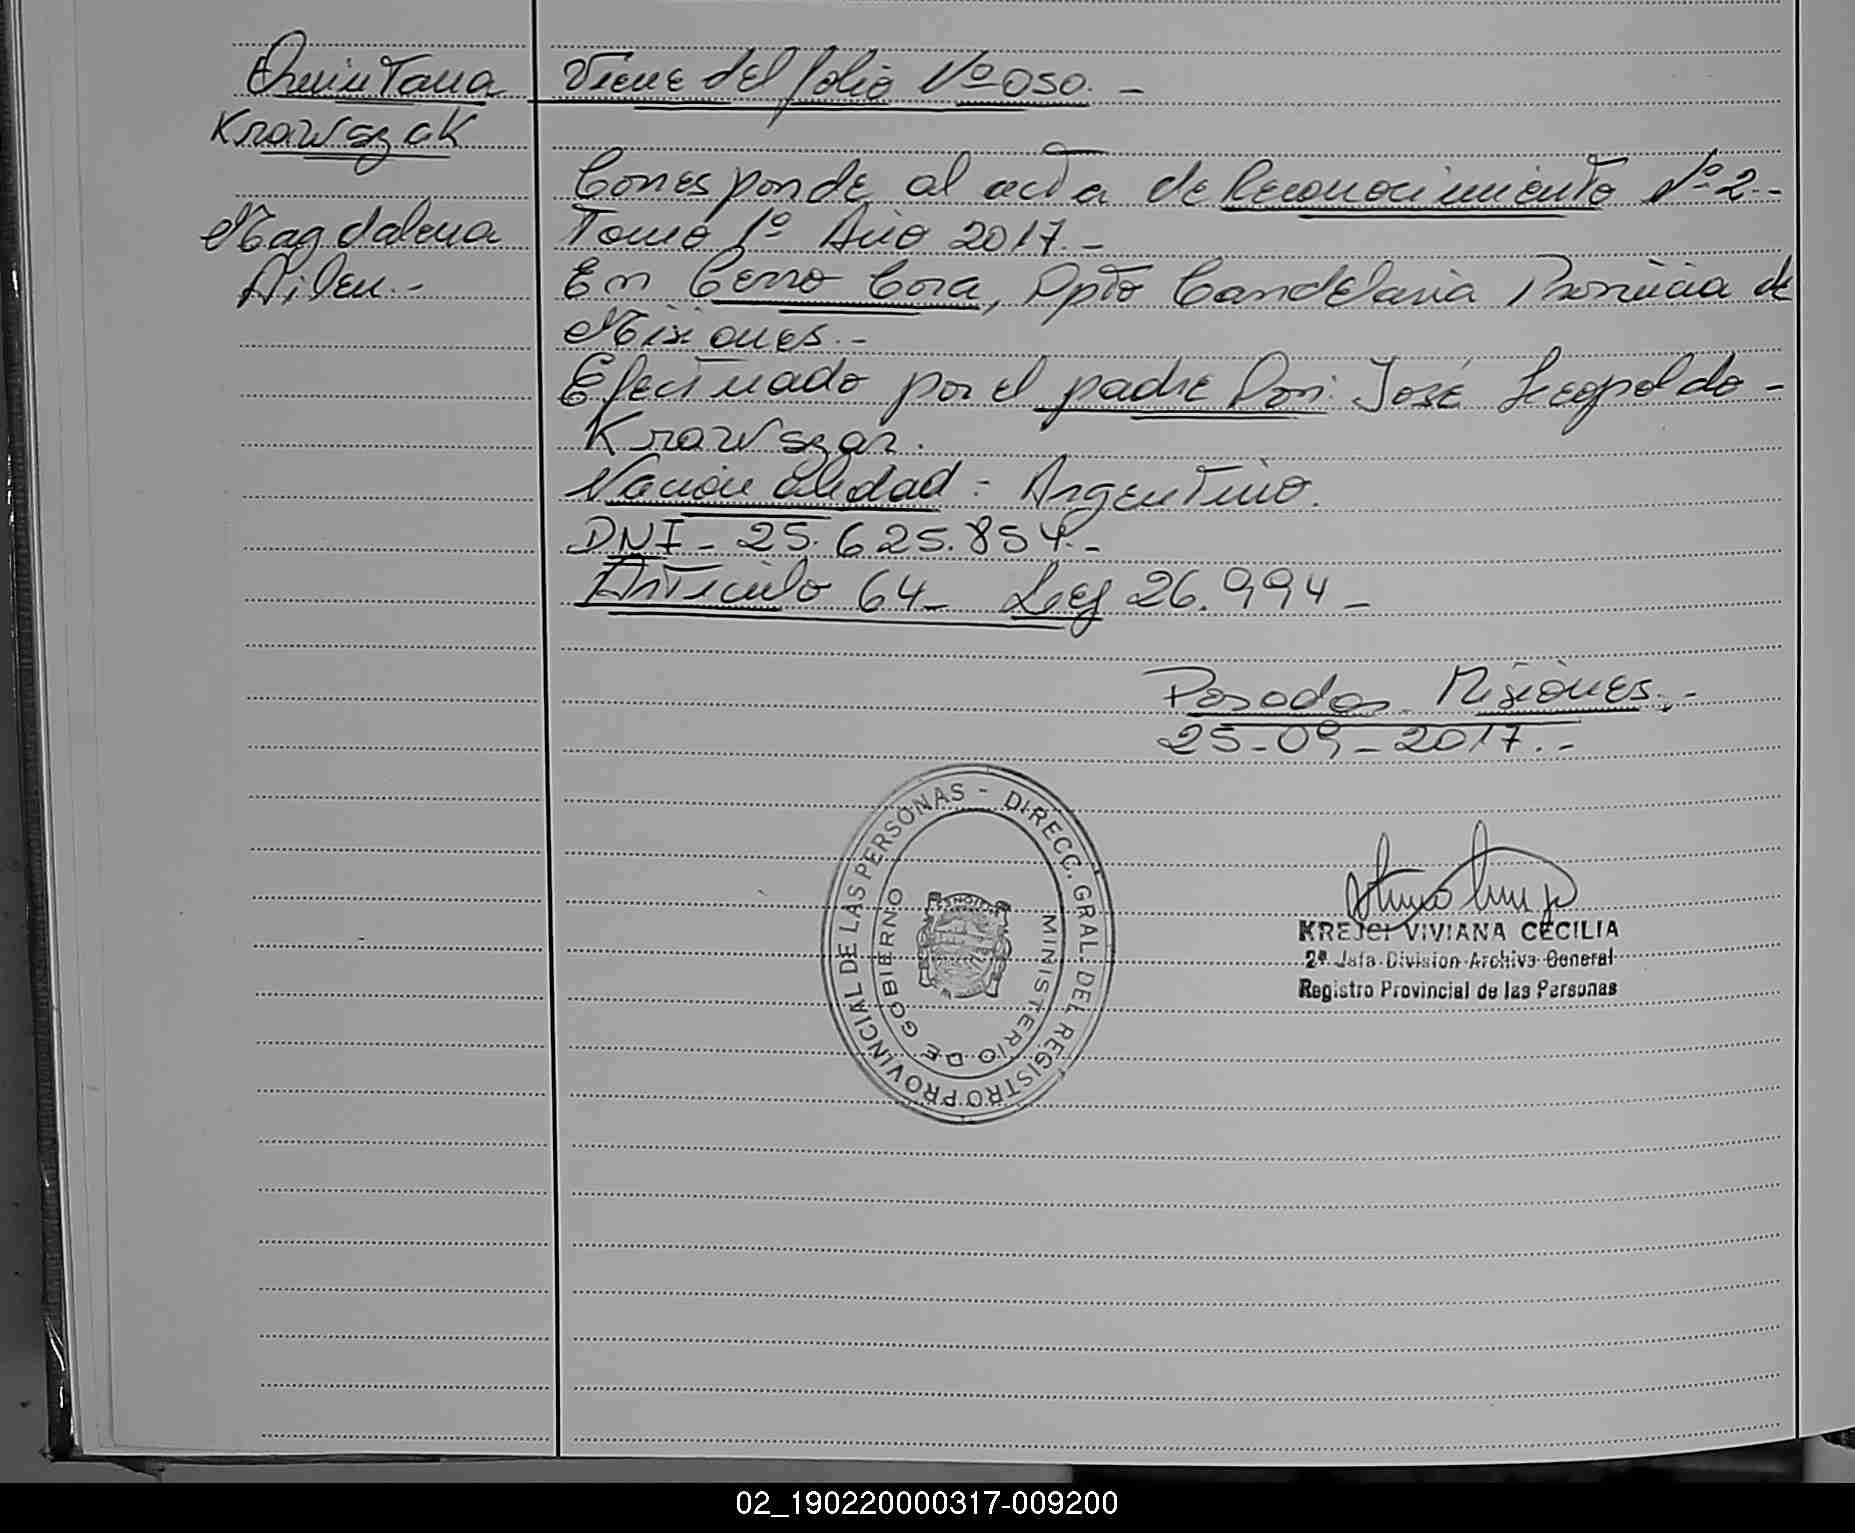 Quintana
Krawszok
Magdalena
Ailen.-
Viene del folio Nº 050.-
Corresponde al acta de Reconocimiento Nº 2.-
Tomo 1º Año 2017.-
En Cerro Cora, Dpto Candelaria Provincia de
Misiones.-
Efectuado por el padre Don: José Leopoldo-
Krawszar.
Nacionalidad: Argentino.
DNI- 25.625.854.-
Articulo 64- Ley 26.994-
Posadas Misiones.-
25-09-2017.-
REGISTRO PROVINCIAL DE LAS PERSONAS - DIRECC. GRAL. DEL
MINISTERIO DE GOBIERNO
KREJCI VIVIANA CECILIA
2ª Jefa Division Archivo General
Registro Provincial de las Personas
02_190220000317-009200